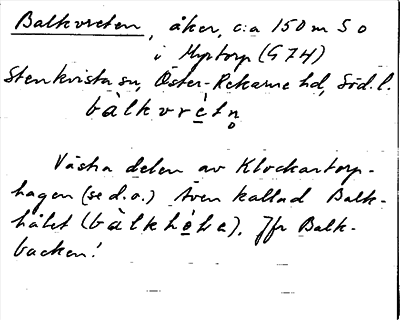 Balkvreten, åker, c:a 150 m SO
i Myrtorp (G 74)
Stenkvista sn, Öster-Rekarne hd, Söd. l.
bàlkvrètn̥
Västra delen av Klockartorp-
hagen (se d.o.) Även kallad Balk-
hålet (bàlkhòlə). Jfr Balk-
backen!